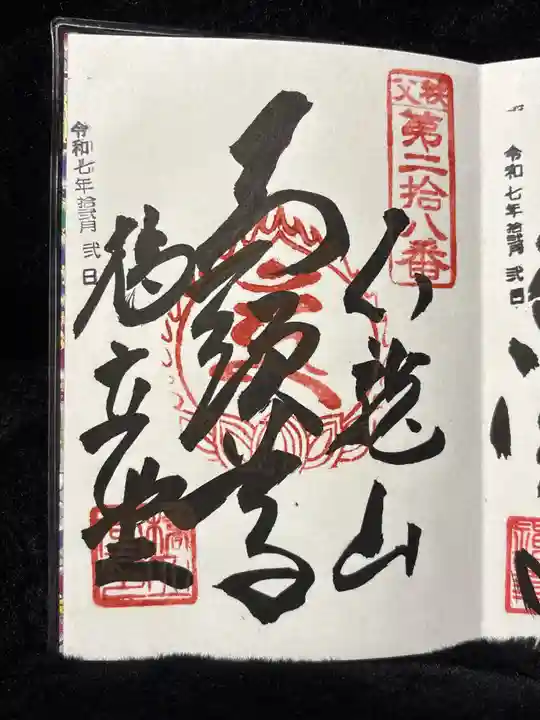 秩父
第二拾八番
石龍山
馬頭尊
橋立堂
令和七年拾弐月弐日
令和七年拾弐月弐日